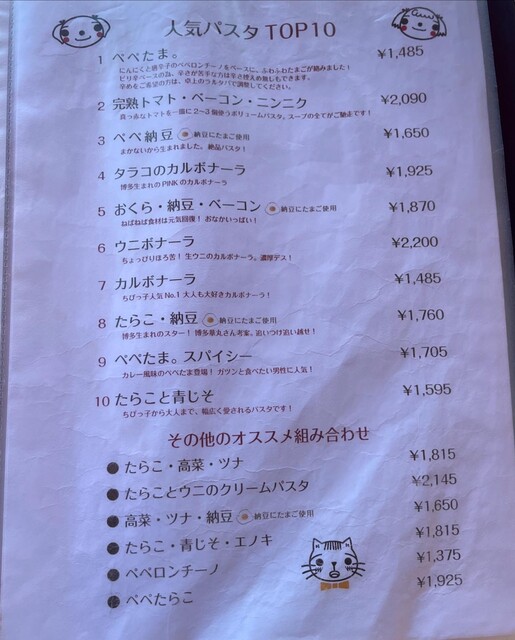 人気パスタ TOP10
1 ペペたま。 ¥1,485
にんにくと唐辛子のペペロンチーノをベースに、ふわふわたまごが絡みました！
ピリ辛ベースの為、辛さが苦手な方は辛さ控えめ致しもできます。
辛めをご希望の方は、卓上のラルタバで調整してください。
2 完熟トマト・ベーコン・ニンニク ¥2,090
真っ赤なトマトを一皿に2〜3個使うボリュームパスタ。スープの全てがご馳走です！
3 ペペ納豆 納豆にたまご使用 ¥1,650
まかないから生まれました。絶品パスタ！
4 タラコのカルボナーラ ¥1,925
博多生まれのPINKのカルボナーラ
5 おくら・納豆・ベーコン 納豆にたまご使用 ¥1,870
ねばねば食材は元気回復！ おなかいっぱい！
6 ウニボナーラ ¥2,200
ちょっぴりほろ苦！ 生ウニのカルボナーラ。濃厚デス！
7 カルボナーラ ¥1,485
ちびっ子人気No.1 大人も大好きカルボナーラ！
8 たらこ・納豆 納豆にたまご使用 ¥1,760
博多生まれのスター！ 博多華丸さん考案。追いつけ追い越せ！
9 ペペたま。スパイシー ¥1,705
カレー風味のペペたま登場！ ガツンと食べたい男性に人気！
10 たらこと青じそ ¥1,595
ちびっ子から大人まで、幅広く愛されるパスタです！
その他のオススメ組み合わせ
● たらこ・高菜・ツナ ¥1,815
● たらことウニのクリームパスタ ¥2,145
● 高菜・ツナ・納豆 納豆にたまご使用 ¥1,650
● たらこ・青じそ・エノキ ¥1,815
● ペペロンチーノ ¥1,375
● ペペたらこ ¥1,925